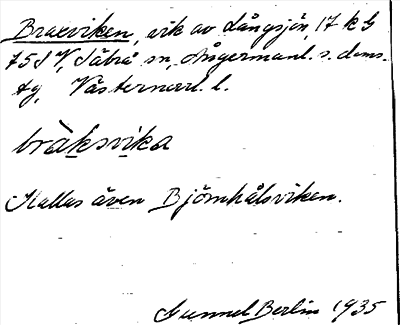 Braxviken, vik av Långsjön, 17 k G
75 S V, Säbrå sn, Ångermanl. s. doms.
tg, Västernorrl. l.
bràksvika
Kallas även Björnhålsviken.
Gunnel Berlin 1935